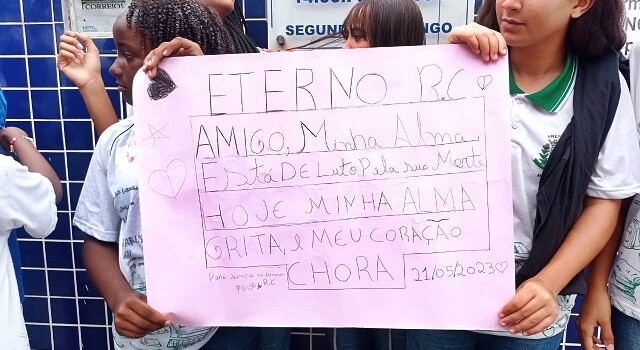 CORREIO
SEGUNDO
NGO
ETERNO R.C
AMIGO, Minha Alma
Está DE Luto Pela sua Morte
HOJE MINHA ALMA
GRITA, e MEU CORAÇÃO
CHORA
21/05/2023
R.C